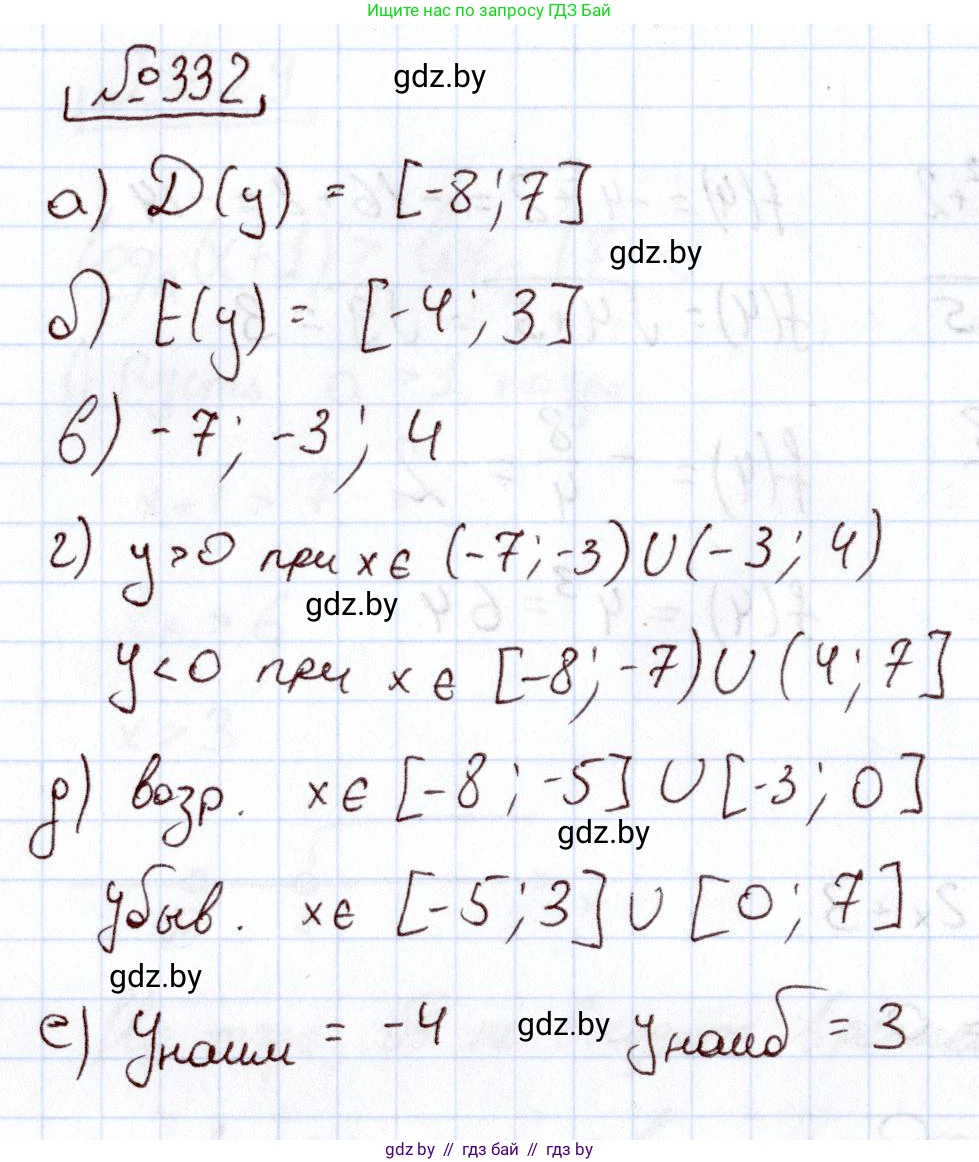 Ищите нас по запросу ГДЗ Бай
№332
gdz.by
а) D(y) = [-8; 7]
gdz.by
б) E(y) = [-4; 3]
в) -7; -3; 4
г) y>0 при x∈ (-7; -3) ∪ (-3; 4)
gdz.by
y<0 при x∈ [-8; -7) ∪ (4; 7]
д) возр. x∈ [-8; -5] ∪ [-3; 0]
gdz.by
убыв. x∈ [-5; 3] ∪ [0; 7]
gdz.by
е) yнаим = -4 gdz.by yнаиб = 3
gdz.by // гдз бай // gdz.by